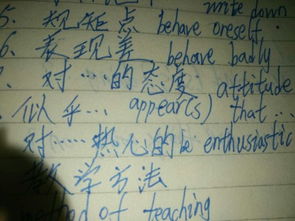 write down
5. 规矩点 behave oneself.
6. 表现差 behave badly
对……的态度 attitude
似乎… appear(s) that …
对……热心的 be enthusiastic
教学方法
of teaching